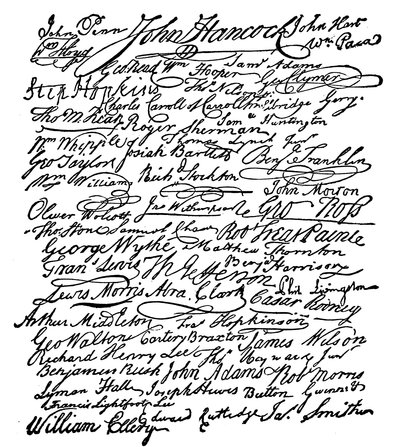 John Penn John Hancock John Hart
Wm Floyd Wm Paca
Geo Read Wm Hooper Saml Adams Geo Clymer
Step Hopkins Thos Nelson jr
Charles Carroll of Carrollton Elbridge Gerry
Tho M Kean Roger Sherman Saml Huntington
Wm Whipple Thomas Lynch Junr
Geo Taylor Josiah Bartlett Benj Franklin
Wm Williams Richd Stockton John Morton
Oliver Wolcott Jno Witherspoon Geo Ross
Thos Stone Samuel Chase Robt Treat Paine
George Wythe Matthew Thornton
Fran Lewis Th Jefferson Benj Harrison
Lewis Morris Abra Clark Phil Livingston
Casar Rodney
Arthur Middleton Fras Hopkinson
Geo Walton Carter Braxton James Wilson
Richard Henry Lee Thos Heyward Junr
Benjamin Rush John Adams Robt Morris
Lyman Hall Joseph Hewes Button Gwinnett
Francis Lightfoot Lee
William Ellery Edward Rutledge Jas Smith